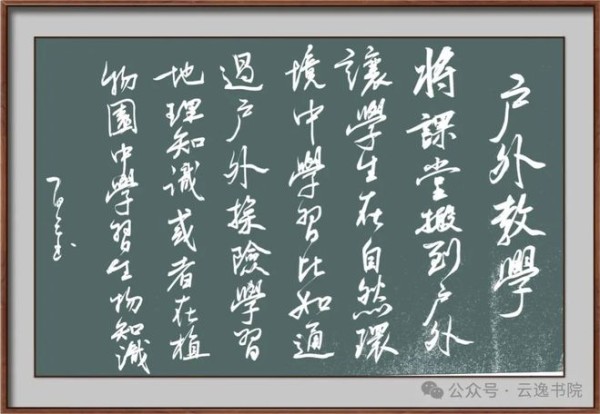 户外教學
将課堂搬到户外
讓學生在自然環
境中學習比如通
過户外探險學習
地理知識或者在植
物園中學習生物知識
公众号·云逸书院